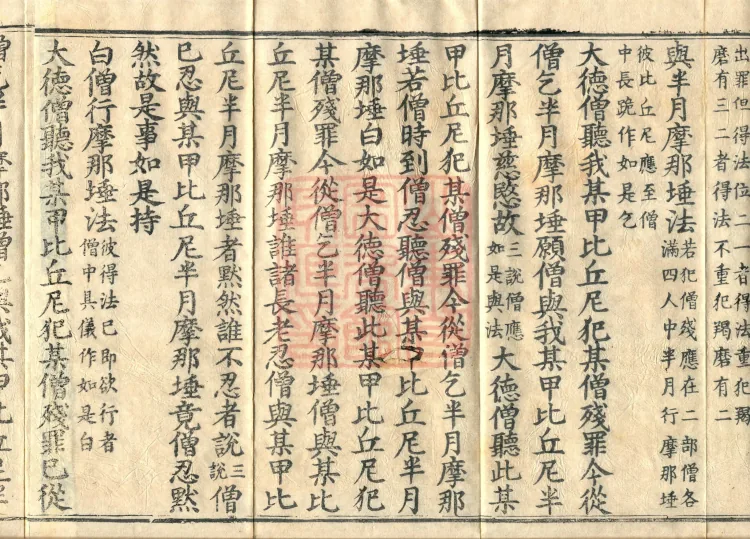 出罪但得法位二一者得法重犯羯
磨有三二者得法不重犯羯磨有二
與半月摩那埵法若犯僧殘應在二部僧各
滿四人中半月行摩那埵
彼比丘尼應至僧
中長跪作如是乞
大德僧聽我某甲比丘尼犯某僧殘罪今從
僧乞半月摩那埵願僧與我某甲比丘尼半
月摩那埵慈愍故三說僧應如是與法大德僧聽此某
甲比丘尼犯某僧殘罪今從僧乞半月摩那
埵若僧時到僧忍聽僧與某甲比丘尼半月
摩那埵白如是大德僧聽此某甲比丘尼犯
某僧殘罪今從僧乞半月摩那埵僧與某比
丘尼半月摩那埵誰諸長老忍僧與某甲比
丘尼半月摩那埵者默然誰不忍者說三說僧
已忍與某甲比丘尼半月摩那埵竟僧忍默
然故是事如是持
白僧行摩那埵法彼得法已即欲行者
僧中具儀作如是白
大德僧聽我某甲比丘尼犯某僧殘罪已從